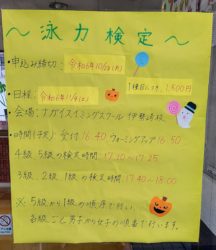 ～泳力検定～
・申込み締切: 令和6年10/21(月)
1種目につき 1,800円
・日程: 令和6年11/9(土)
・会場: ナガイスイミングスクール 伊勢崎校
・時間(予定) 受付 16:40 ウォーミングアップ 16:50
4級 5級の検定時間 17:10～17:25
3級. 2級. 1級の検定時間 17:40～18:00
※5級から1級の順序で行い、
各級ごと男子から女子の順番で行います。